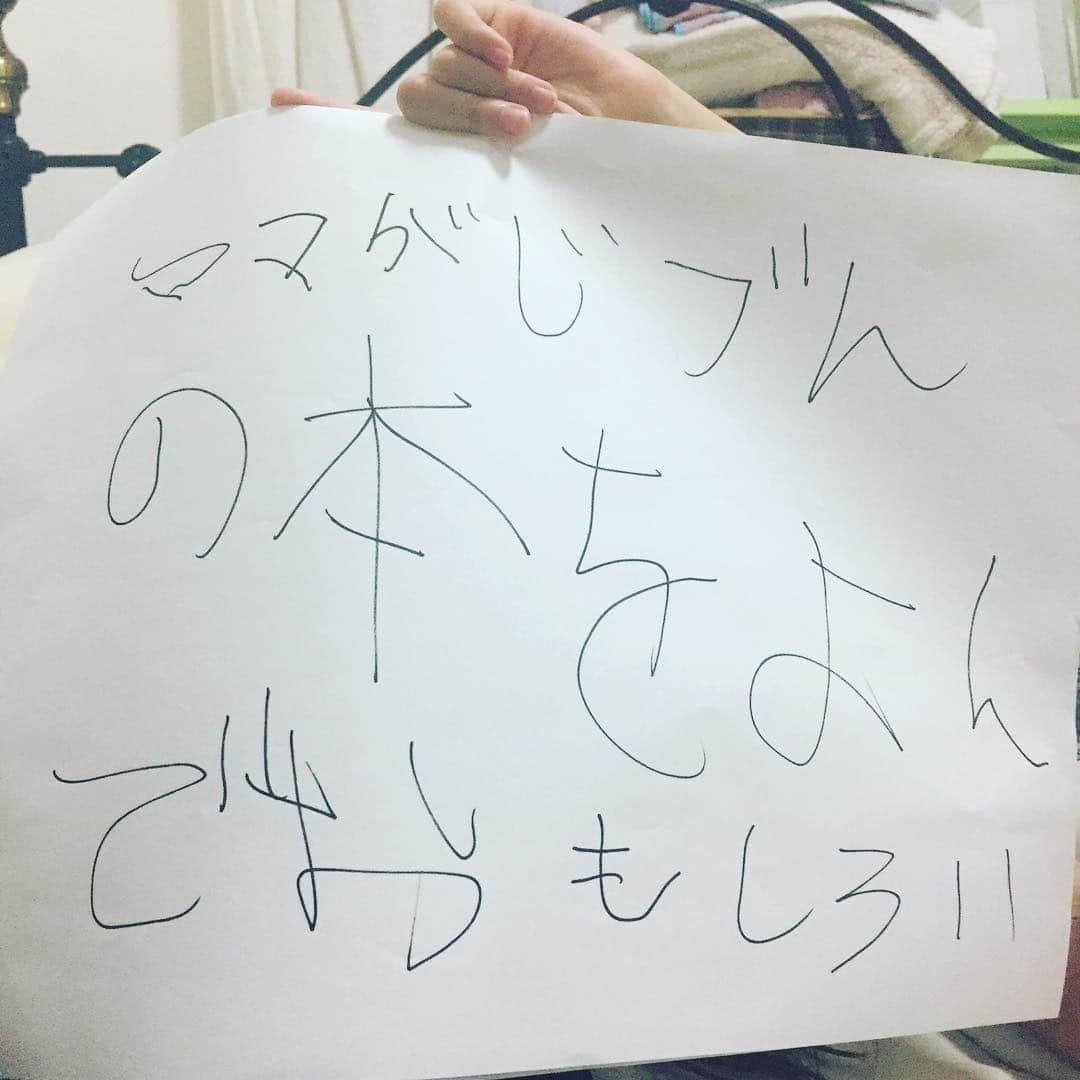 ママがじブん
の本をよん
でおもしろい